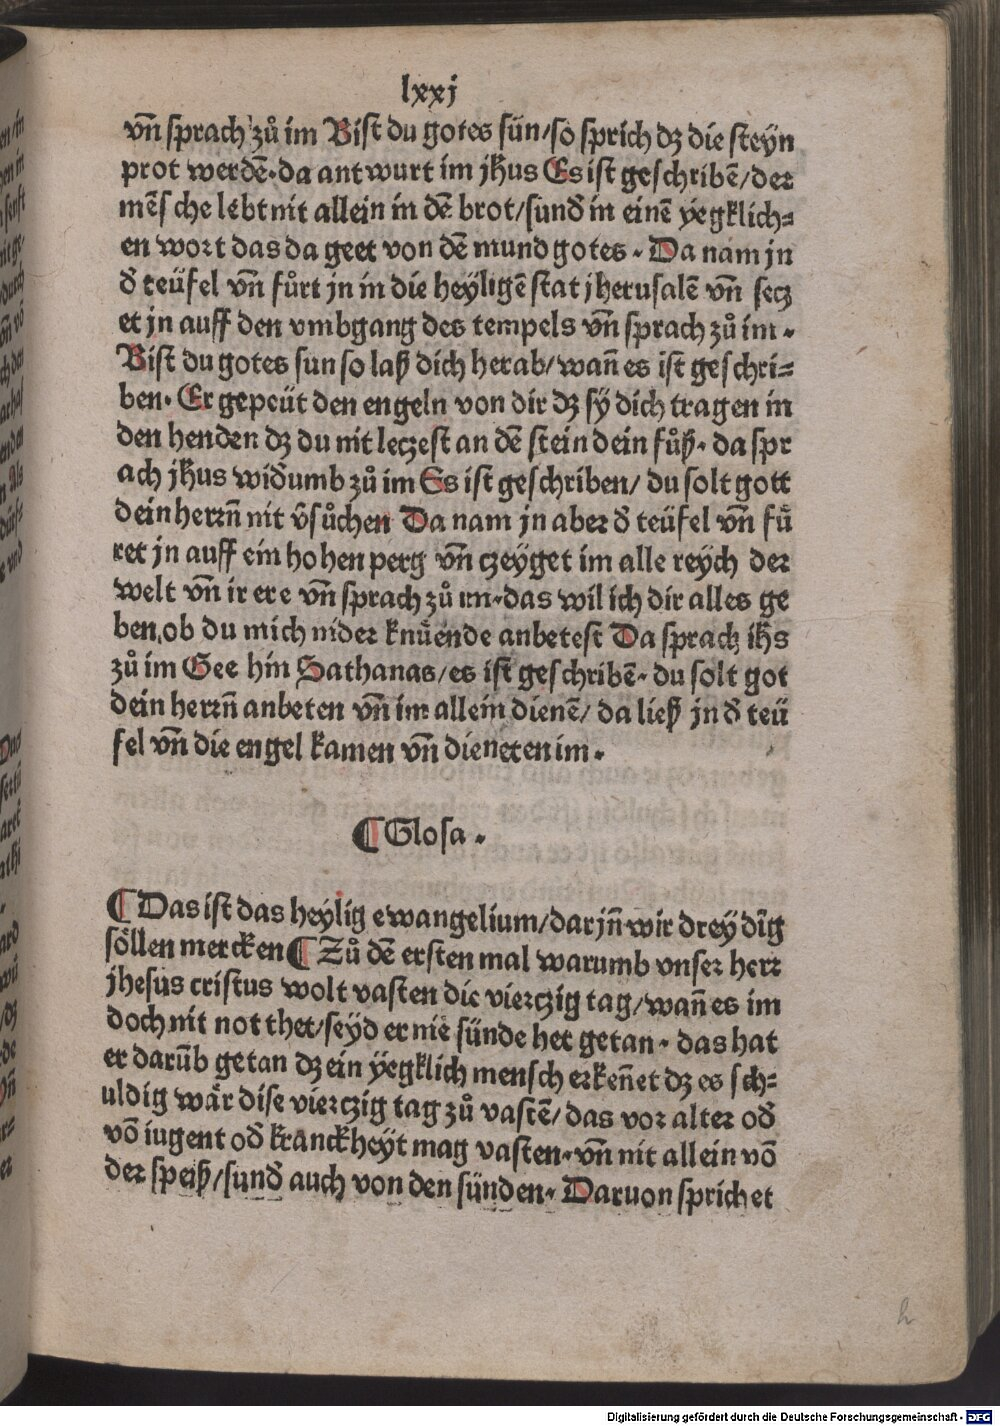 lxxj
vñ sprach zů im Bist du gotes sün/so sprich dz die steÿn
prot werdē·da antwurt im jhus Es ist geschribē/der
mēsche lebt nit allein in dē brot/sund̄ in einē ÿegklich⸗
en wort das da geet von dē mund gotes · Da nam jn
d̄ teüfel vñ fůrt jn in die heÿligē stat jherusalē vñ secz
et jn auff den vmbgang des tempels vñ sprach zů im ·
Bist du gotes sun so laß dich herab/wañ es ist geschri⸗
ben· Er gepeüt den engeln von dir dz sÿ dich tragen in
den henden dz du nit leczest an dē stein dein fůß· da spr
ach jhus wid̄umb zů im Es ist geschriben/ du solt gott
dein herrñ nit v̄sůchen Da nam jn aber d̄ teüfel vñ fů
ret jn auff ein hohen perg vñ czeÿget im alle reÿch der
welt vñ ir ere vñ sprach zů im·das wil ich dir alles ge
ben,ob du mich nider knüende anbetest Da sprach ihs
zů im Gee hin Sathanas/es ist geschribē· du solt got
dein herrñ anbeten vñ im allein dienē/ da ließ jn d̄ teü
fel vñ die engel kamen vñ dieneten im·
¶ Glosa ·
¶ Das ist das heÿlig ewangelium/dar jñ wir dreÿ dīg
söllen mercken ¶ Zů dē ersten mal warumb vnser herr
jhesus cristus wolt vasten die vierczig tag/wañ es im
doch nit not thet/seÿd er nie sünde het getan· das hat
er darūb getan dz ein ÿegklich mensch erkeñet dz es sch⸗
uldig wär dise vierczig tag zů vastē/das vor alter od̄
vō iugent od̄ kranckheÿt mag vasten·vñ nit allein vō
der speiß/sund̄ auch von den sünden· Daruon sprichet
h
Digitalisierung gefördert durch die Deutsche Forschungsgemeinschaft - DFG